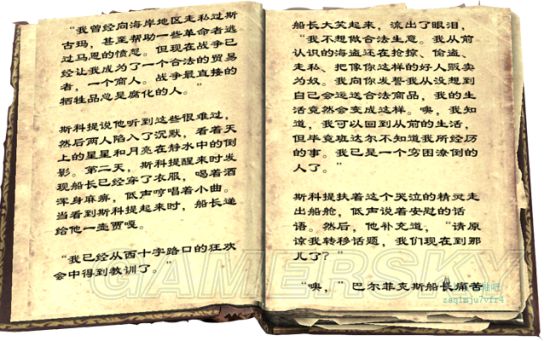 "我曾经向海岸地区走私过斯
古玛，甚至帮助一些革命者逃
过马恩的愤怒。但现在战争已
经让我成为了一个合法的贸易
者，一个商人。战争最直接的
牺牲品总是腐化的人。"
斯科提说他听到这些很难过，
然后两人陷入了沉默，看着天
上的星星和月亮在静水中的倒
影。第二天，斯科提醒来时发
现船长已经穿了衣服，喝着酒
浑身麻痹，低声哼唱着小曲。
当看到斯科提起来时，船长递
给他一壶贾嘎。
"我已经从西十字路口的狂欢
会中得到教训了。"
船长大笑起来，流出了眼泪，
"我不想做合法生意。我从前
认识的海盗还在抢掠、偷盗、
走私、把像你这样的好人贩卖
为奴。我向你发誓我从没想到
自己会运送合法商品，我的生
活竟然会变成这样。噢，我知
道，我可以回到从前的生活，
但毕竟班达尔不知道我所经历
的事。我已是一个穷困潦倒的
人了。"
斯科提扶着这个哭泣的精灵走
出船舱，低声说着安慰的话
语。然后，他补充道，"请原
谅我转移话题，我们现在到那
儿了？"
"噢，"巴尔菲克斯船长痛苦
GAMERSKY
zaq1mju7vfr4